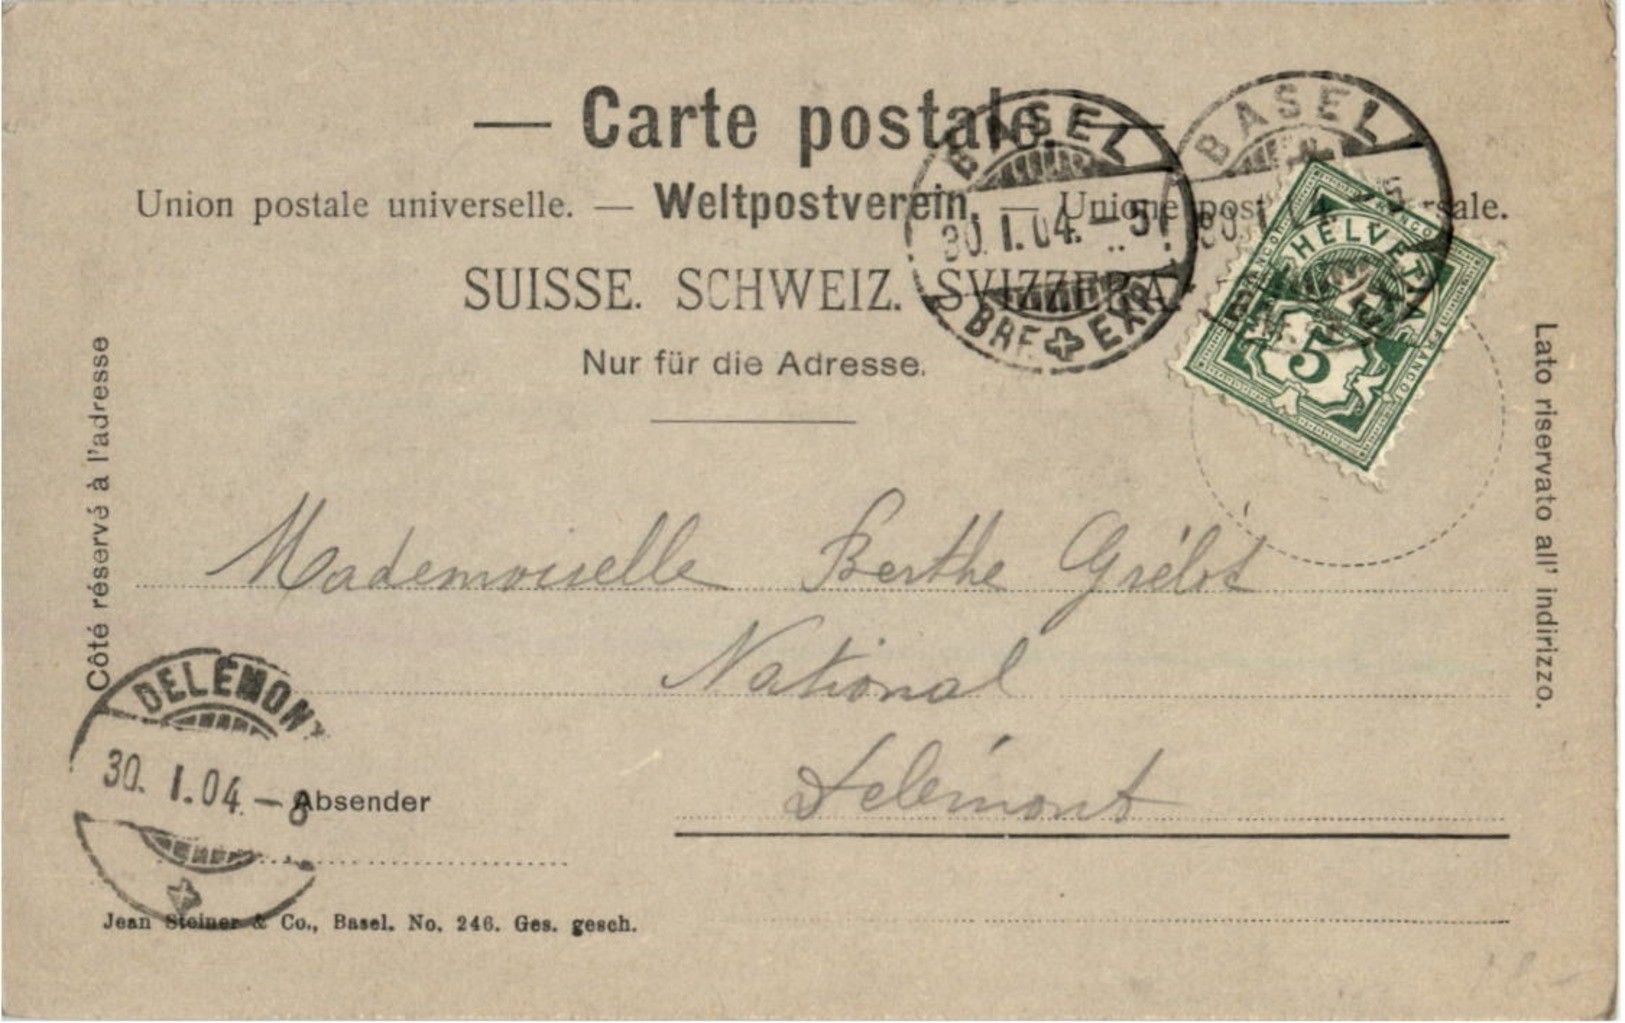 — Carte postale. —
Union postale universelle. — Weltpostverein. — Unione postale universale.
SUISSE. SCHWEIZ. SVIZZERA.
Nur für die Adresse.
BASEL
30.I.04.–5
BRF. EXP.
BASEL
30.I.
HELVETIA
FRANCO
5
Côté réservé à l'adresse
Lato riservato all' indirizzo.
Mademoiselle Berthe Grélôt
National
Delémont
DELÉMONT
30.I.04.–8
Absender
Jean Steiner & Co., Basel. No. 246. Ges. gesch.